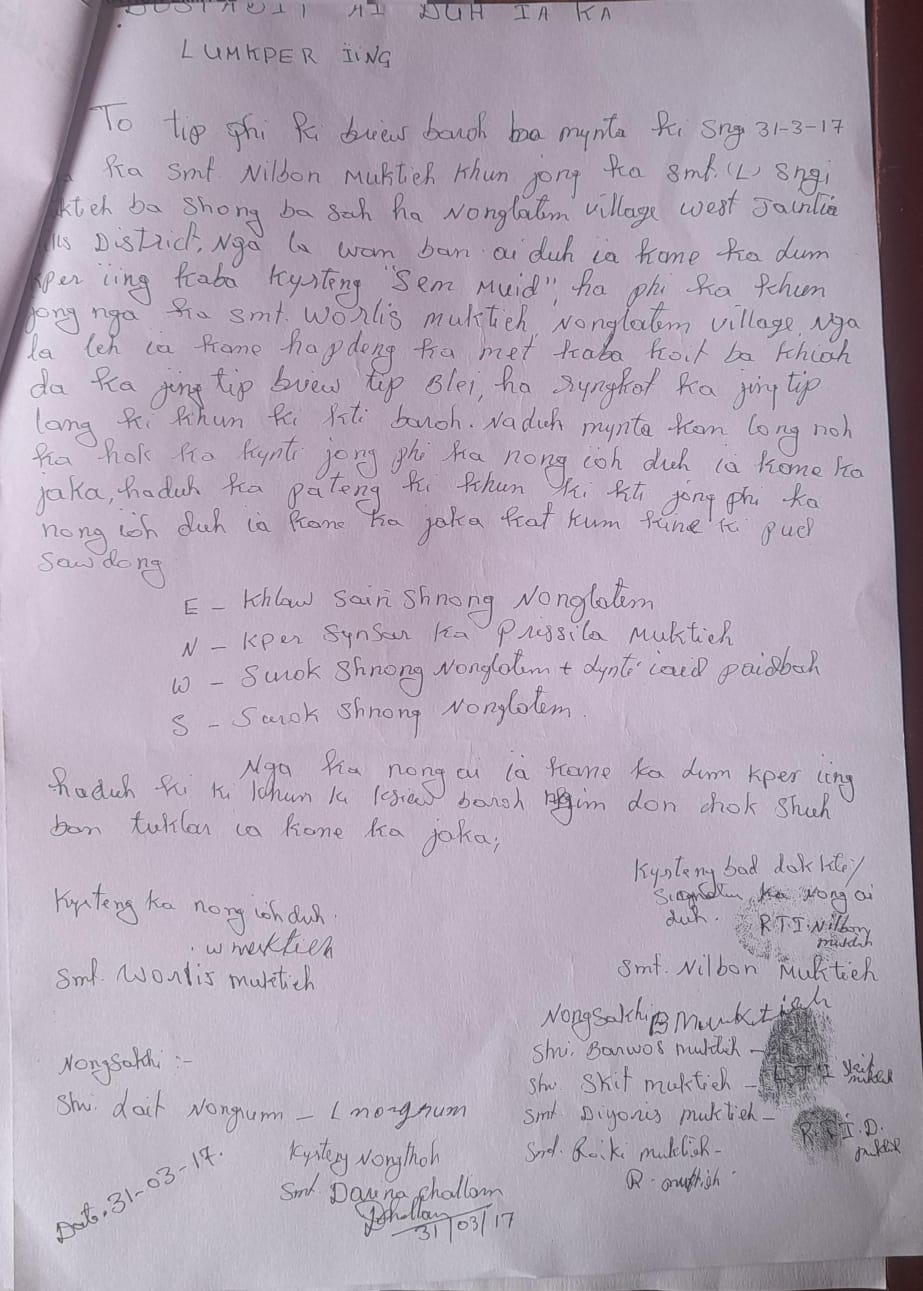 DUSTAUIT AI DUH IA KA
LUMKPER ÏING
To tip phi ki briew baroh ba mynta ki sng 31-3-17
ka Smt. Nilbon Muktieh khun jong ka Smt. (L) Sngi
ktieh ba shong ba sah ha Nonglatem village west Jaintia
lls District, Nga la wan ban ai duh ia kane ka dum
kper iing kaba kyrteng "Sem Muid", ha phi ka khun
jong nga ka Smt. Worlis muktieh Nonglatem village. Nga
la leh ia kane hapdeng ka met kaba koit ba khiah
da ka jing tip briew tip Blei, ha syngkot ka jing tip
lang ki khun ki kti baroh. Naduh mynta kan long noh
ka hok ka kynti jong phi ka nong ioh duh ia kane ka
jaka, haduh ka pateng ki khun ki kti jong phi ka
nong ioh duh ia kane ka jaka kat kum kine ki pud
sawdong
E - Khlaw sain shnong Nonglatem
N - Kper synsar ka Prissila Muktieh
W - Surok Shnong Nonglatem + dynti iaid paidbah
S - Surok Shnong Nonglatem.
Nga ka nong ai ia kane ka dum kper iing
haduh ki ki khun ki ksiew baroh ngim don chok shuh
ban tuklar ia kane ka jaka;
Kyrteng bad dak kti/
ka nong ai
duh.
R.T.I. Nilbon
muktieh
Smt. Nilbon Muktieh
Kyrteng ka nong ioh duh.
w muktieh
Smt. Worlis muktieh
Nongsakhi B Muktieh
Shri. Barwos muktieh -
Shri. Skit muktieh - I Skit
muktieh
Smt. Diyoris muktieh - R.T.I.D.
muktieh
Smt. Roiki muktieh -
R. muktieh
Nongsakhi :-
Shri. dait Nongrum - L nongrum
Kyrteng Nongthoh
Smt. Darina phallam
Dphallam
31/03/17
Date. 31-03-17.